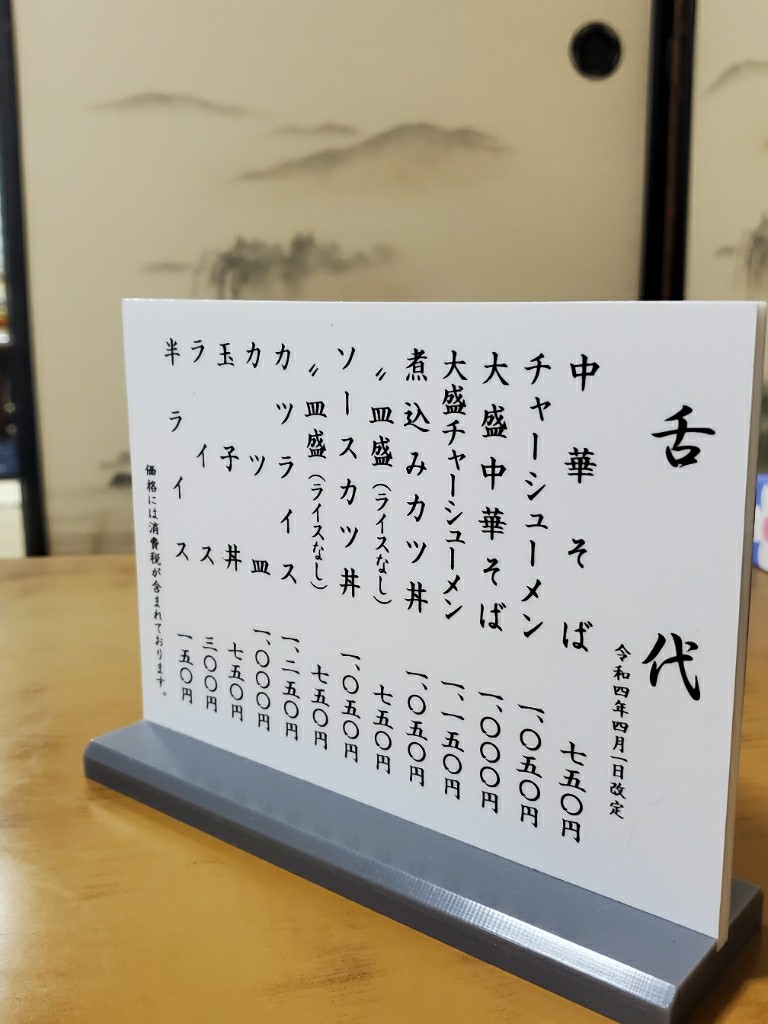 舌代
令和四年四月一日改定
中華そば 七五〇円
チャーシューメン 一、〇五〇円
大盛中華そば 一、〇〇〇円
大盛チャーシューメン 一、一五〇円
煮込みカツ丼 一、〇五〇円
〃皿盛(ライスなし) 七五〇円
ソースカツ丼 一、〇五〇円
〃皿盛(ライスなし) 七五〇円
カツライス 一、二五〇円
カツ皿 一、〇〇〇円
玉子丼 七五〇円
ライス 三〇〇円
半ライス 一五〇円
価格には消費税が含まれております。